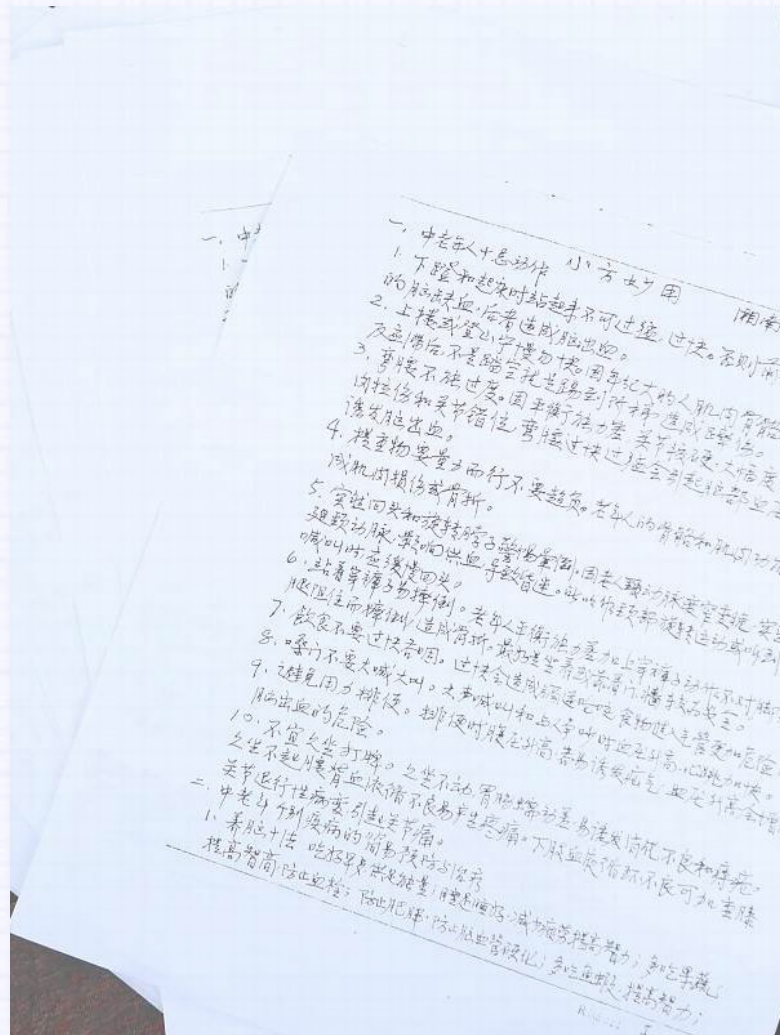 小方妙用 湘南
一、中老年人十忌动作
1. 下蹲和起床时站起来不可过猛、过快。否则前
的脑缺血,后者造成脑出血。
2. 上楼或登山宁慢勿快。因年纪大的人肌肉骨骼
反应滞后,不是踏空就是踢到阶梯,造成跌伤。
3. 弯腰不能过度。因平衡能力差,关节较硬,大幅度
肉拉伤和关节错位,弯腰过快过猛会引起脑部血
诱发脑出血。
4. 搬重物要量力而行不要超负。老年人的骨骼和肌肉动力
成肌肉损伤或骨折。
5. 突然回头和旋转脖子警惕晕倒。因老人颈动脉变窄变硬,突
短颈动脉,影响供血,导致昏迷。
喊叫时应缓慢回头。
6. 站着穿裤子易摔倒。老年人平衡能力差加上穿裤子动作不对
腿阻住而摔倒,造成骨折。最好是坐着或靠着
7. 饮食不要过快吞咽。过快会造成 食物进入气管更加危险
8. 嗓门不要大喊大叫。大声喊叫和与人争吵时血压升高,心跳加快。
9. 避免用力排便。排便时腹压升高,容易诱发疝气;血压升高会增
脑出血的危险。
10. 不宜久坐打牌。久坐不动,胃肠蠕动差,易诱发消化不良和痔疮。
久坐不起腰背血液循不良易产生疼痛。下肢血液循环不良可加重膝
关节退行性病变引起关节痛。
二、中老年 例疾病的简易预防与治疗
1. 养脑十法 吃好早餐供足能量;睡足睡好,减少疲劳提高智力;多吃果蔬,
提高智商,防止血栓;防止肥胖,防止脑血管硬化;多吃鱼虾,提高智力;
一、中老
1.